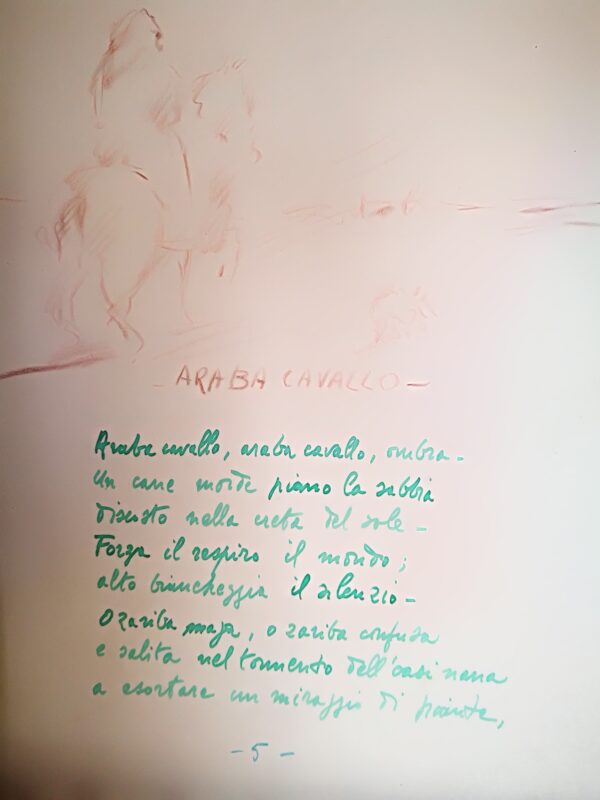 - ARABA CAVALLO -
Araba cavallo, araba cavallo, ombra -
Un cane morde piano la sabbia
discosto nella creta del sole -
Forza il respiro il mondo ;
alto biancheggia il silenzio -
O zariba maga, o zariba confusa
e salita nel tormento dell'oasi nana
a esortare un miraggio di piante,
- 5 -